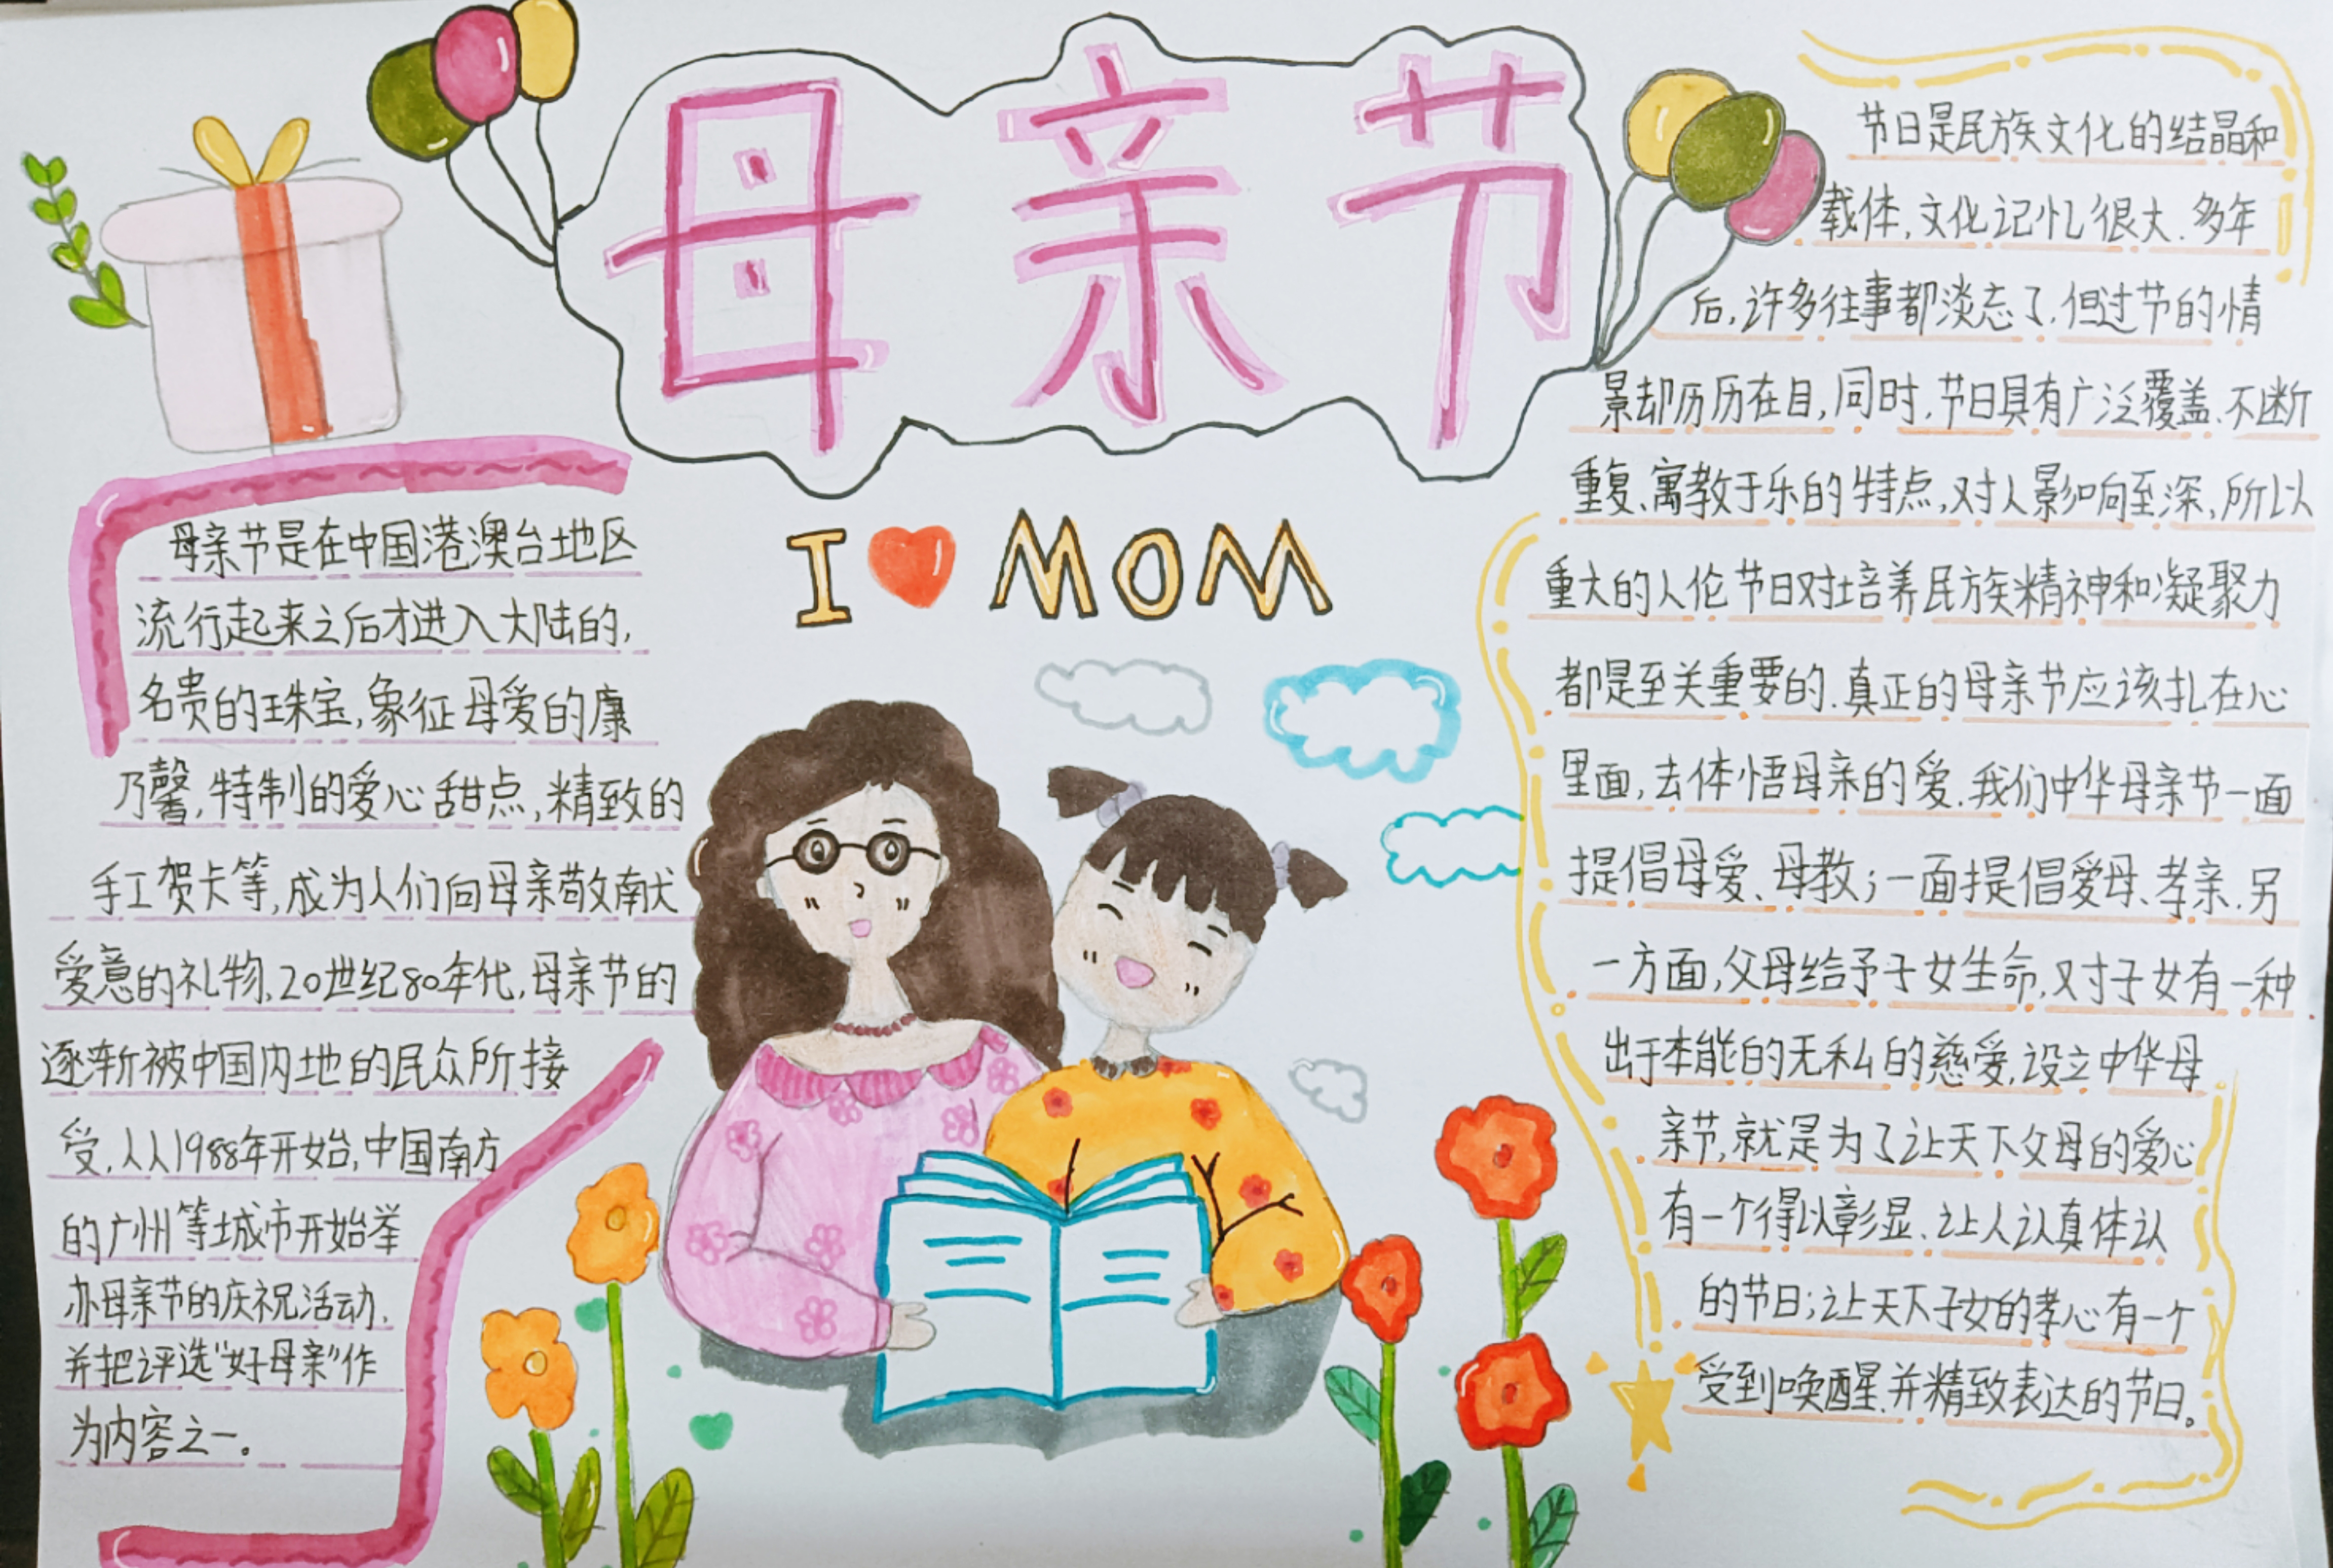 母亲节
I MOM
母亲节是在中国港澳台地区
流行起来之后才进入大陆的,
名贵的珠宝,象征母爱的康
乃馨,特制的爱心甜点,精致的
手工贺卡等,成为人们向母亲敬献
爱意的礼物,20世纪80年代,母亲节的
逐渐被中国内地的民众所接
受,人从1988年开始,中国南方
的广州等城市开始举
办母亲节的庆祝活动,
并把评选“好母亲”作
为内容之一。
节日是民族文化的结晶和
载体,文化记忆很大.多年
后,许多往事都淡忘了,但过节的情
景却历历在目,同时,节日具有广泛覆盖、不断
重复、寓教于乐的特点,对人影响至深,所以
重大的人伦节日对培养民族精神和凝聚力
都是至关重要的.真正的母亲节应该扎在心
里面,去体悟母亲的爱.我们中华母亲节一面
提倡母爱、母教;一面提倡爱母、孝亲.另
一方面,父母给予子女生命,对子女有一种
出于本能的无私的慈爱,设立中华母
亲节,就是为了让天下父母的爱心
有一个得以彰显、让人认真体认
的节日;让天下子女的孝心有一个
受到唤醒.并精致表达的节日。